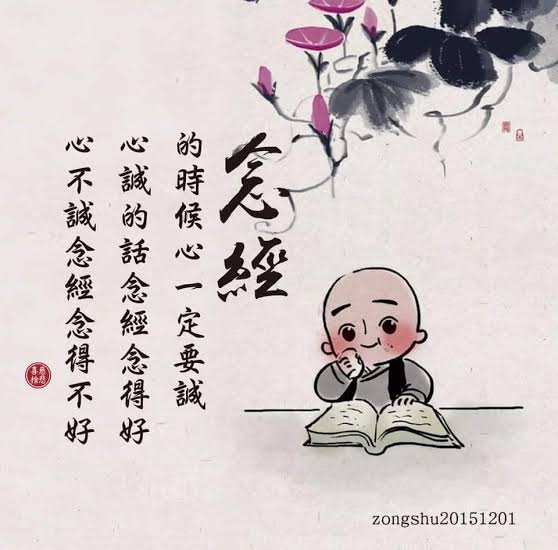 念經
的時候心一定要誠
心誠的話念經念得好
心不誠念經念得不好
慈悲
喜捨
zongshu20151201